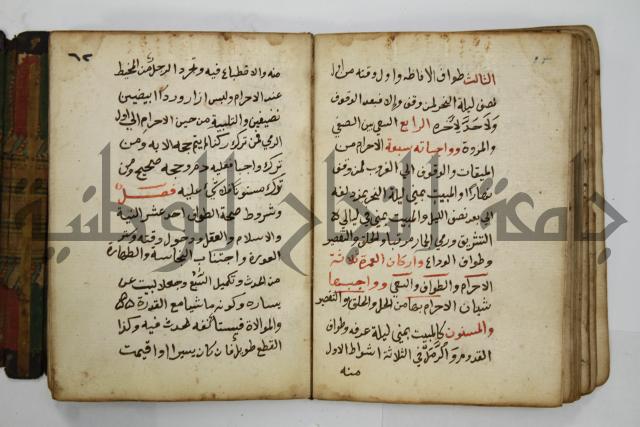 الثالث طواف الافاضه واول وقته من اول
نصف ليلة النحر لمن وقف والا فبعد الوقوف
ولا حد لاخره الرابع السعي بين الصفى
والمروة وواجباته سبعة الاحرام من
الميقات والوقوف الى الغروب لمن وقف
نهارا والمبيت بمنى ليلة النحر بمزدلفه
الى بعد نصف الليل والمبيت بمنى في ليالي
التشريق ورمي الجمار مرتبا والحلق والتقصير
وطواف الوداع واركان العمرة ثلاثة
الاحرام والطواف والسعي وواجبها
شيئان الاحرام بها من الحل والحلق او التقصير
والمسنون كالمبيت بمنى ليلة عرفه وطواف
القدوم والرمل في الثلاثة اشواط الاول
منه
٦٢
منه والاضطباع فيه وتجرد الرجل من المخيط
عند الاحرام ولبس ازار ورداء ابيضين
نضيفين والتلبية من حين الاحرام الى اول
الرمي فمن ترك ركنا لم يتم حجه الا به ومن
ترك واجبا فعليه دم وحجه صحيح ومن
ترك مسنونا فلا شي عليه فصل
وشروط صحة الطواف احد عشر النية
والاسلام والعقل ودخول وقته وستر
العورة واجتناب النجاسة والطهارة
من الحدث وتكميل السبع وجعل البيت عن
يساره وكونه ماشيا مع القدرة
والموالاة فيستانفه لحدث فيه وكذا
القطع طويل فان كان يسيرا او اقيمت
جامعة النجاح الوطنية